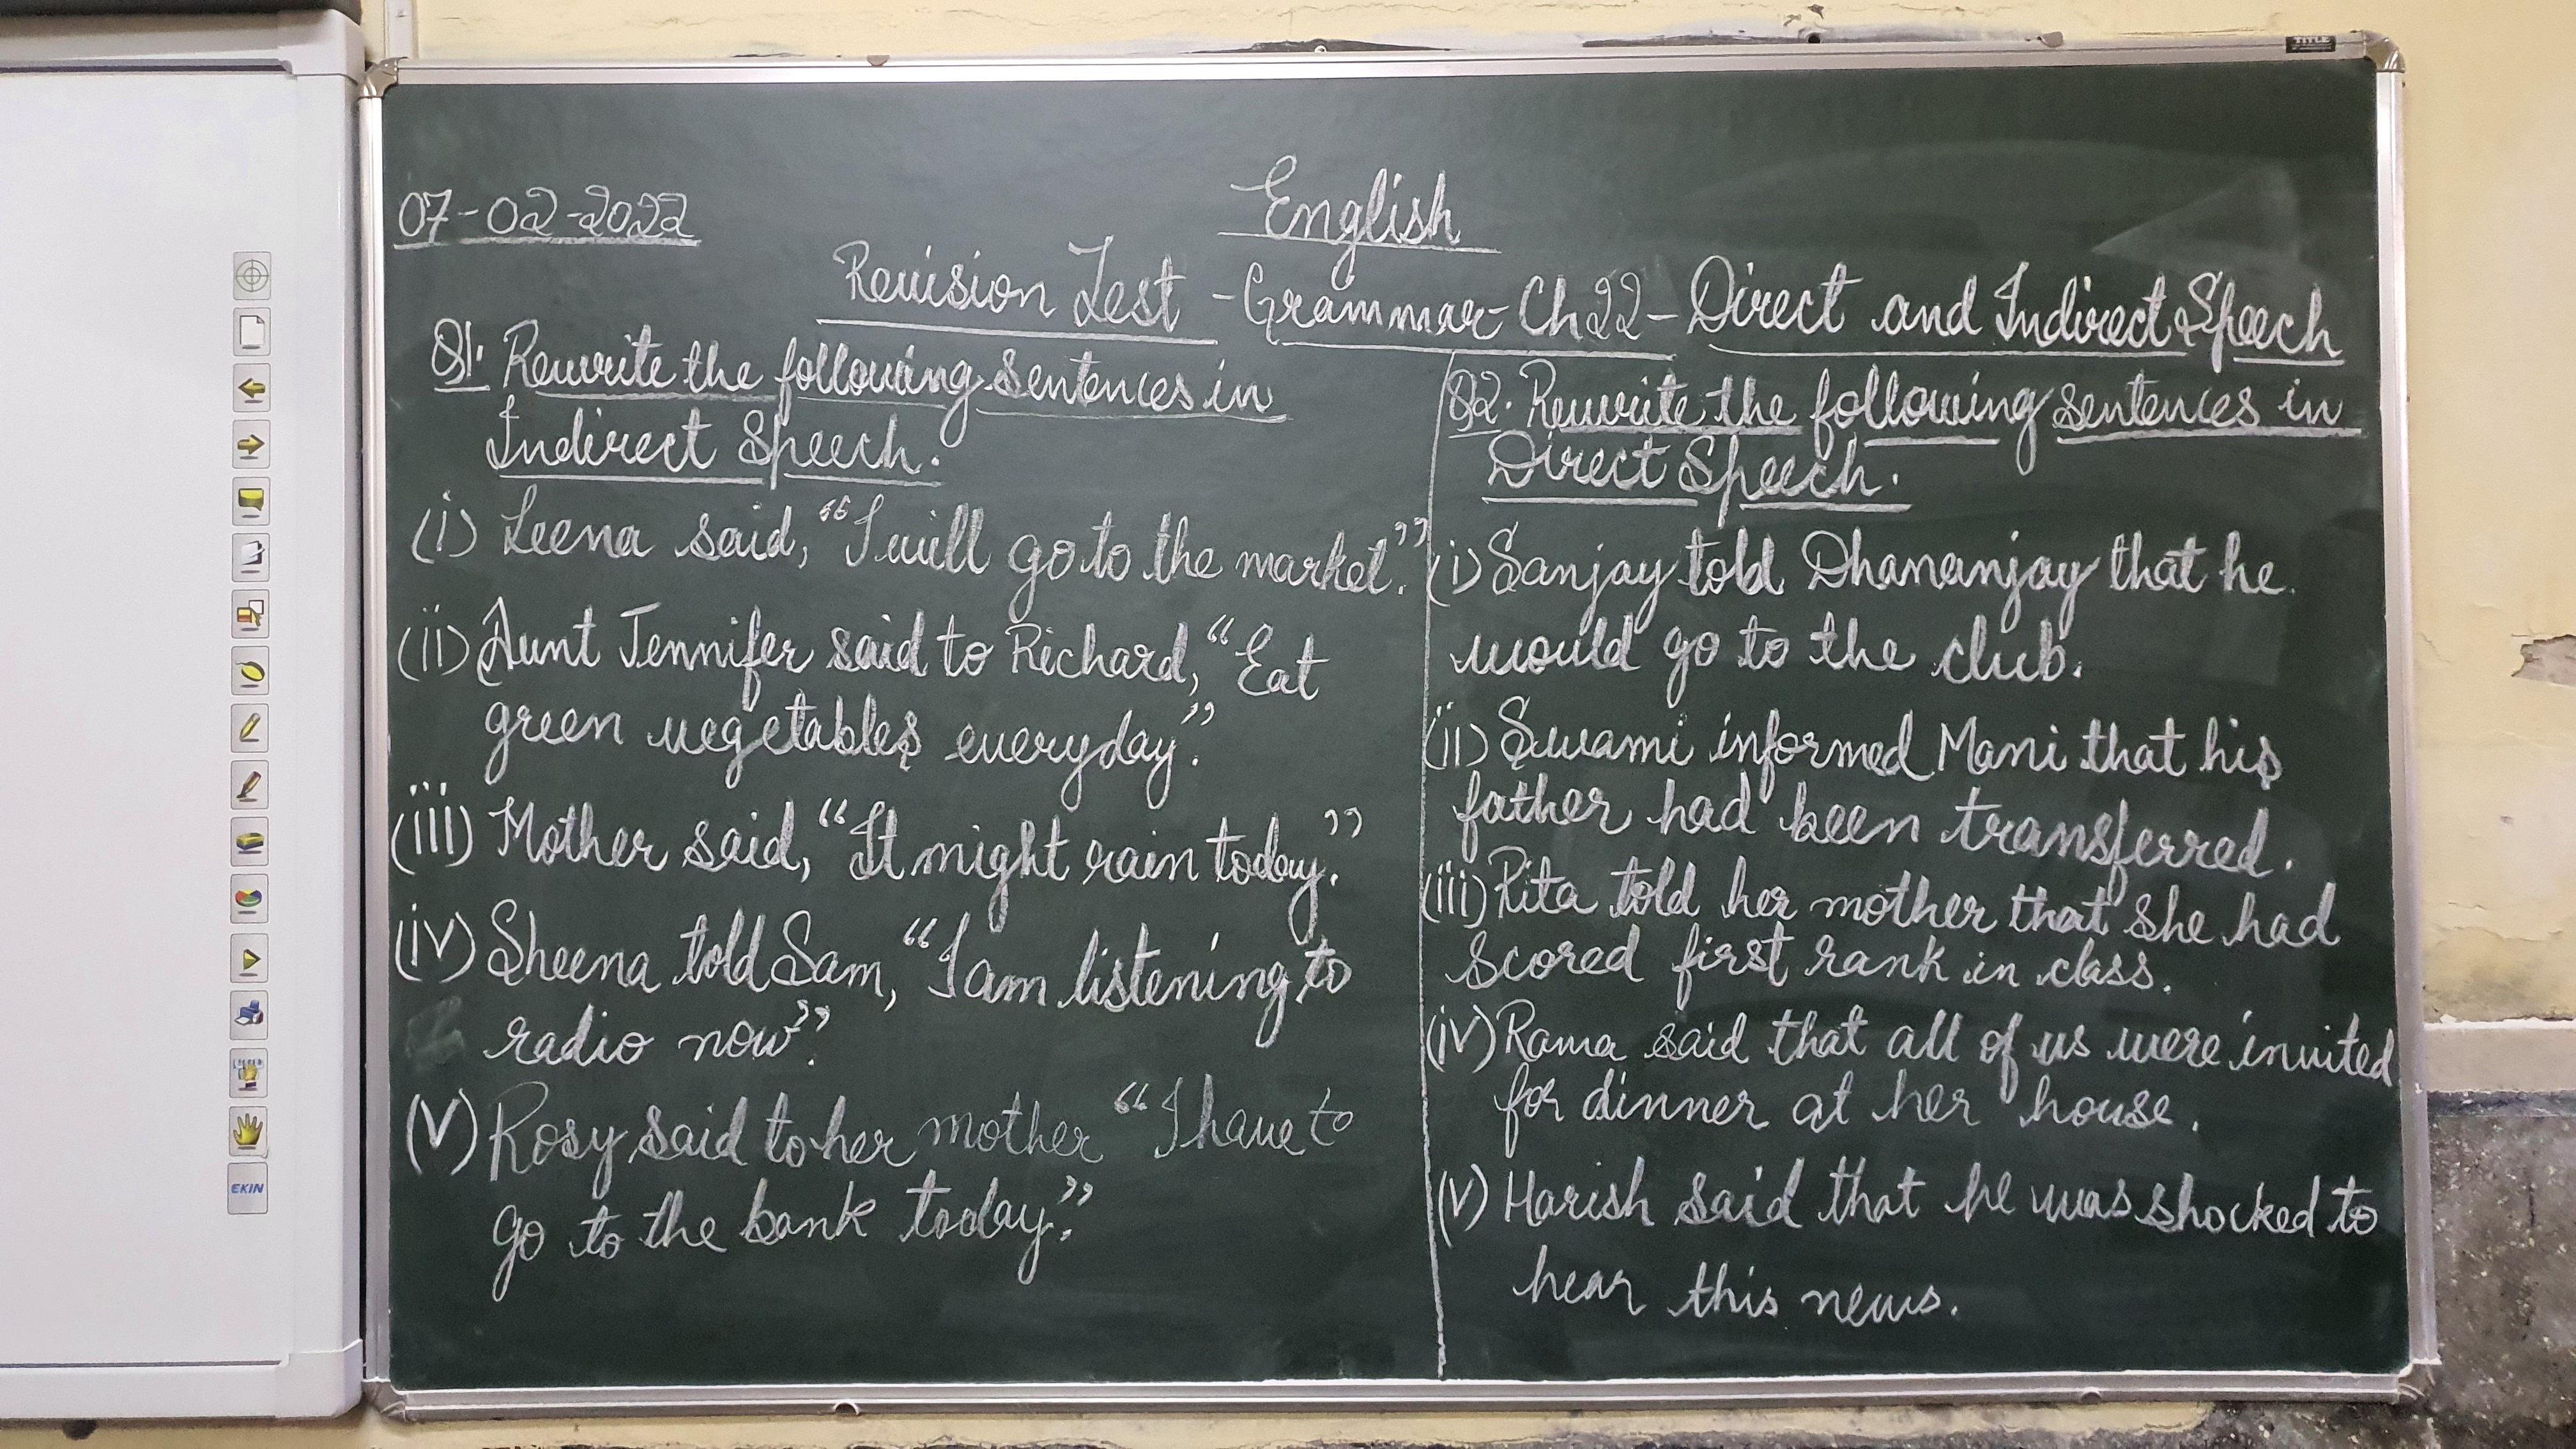 TITLE
07-02-2022
English
Revision Test - Grammar - Ch 22 - Direct and Indirect Speech
Q1. Rewrite the following sentences in
Indirect Speech.
(i) Leena said, “I will go to the market.”
(ii) Aunt Jennifer said to Richard, “Eat
green vegetables everyday.”
(iii) Mother said, “It might rain today.”
(iv) Sheena told Sam, “I am listening to
radio now.”
(v) Rosy said to her mother “I have to
go to the bank today.”
Q2. Rewrite the following sentences in
Direct Speech.
(i) Sanjay told Dhananjay that he
would go to the club.
(ii) Swami informed Mani that his
father had been transferred.
(iii) Rita told her mother that she had
scored first rank in class.
(iv) Rama said that all of us were invited
for dinner at her house.
(v) Harish said that he was shocked to
hear this news.
EKIN